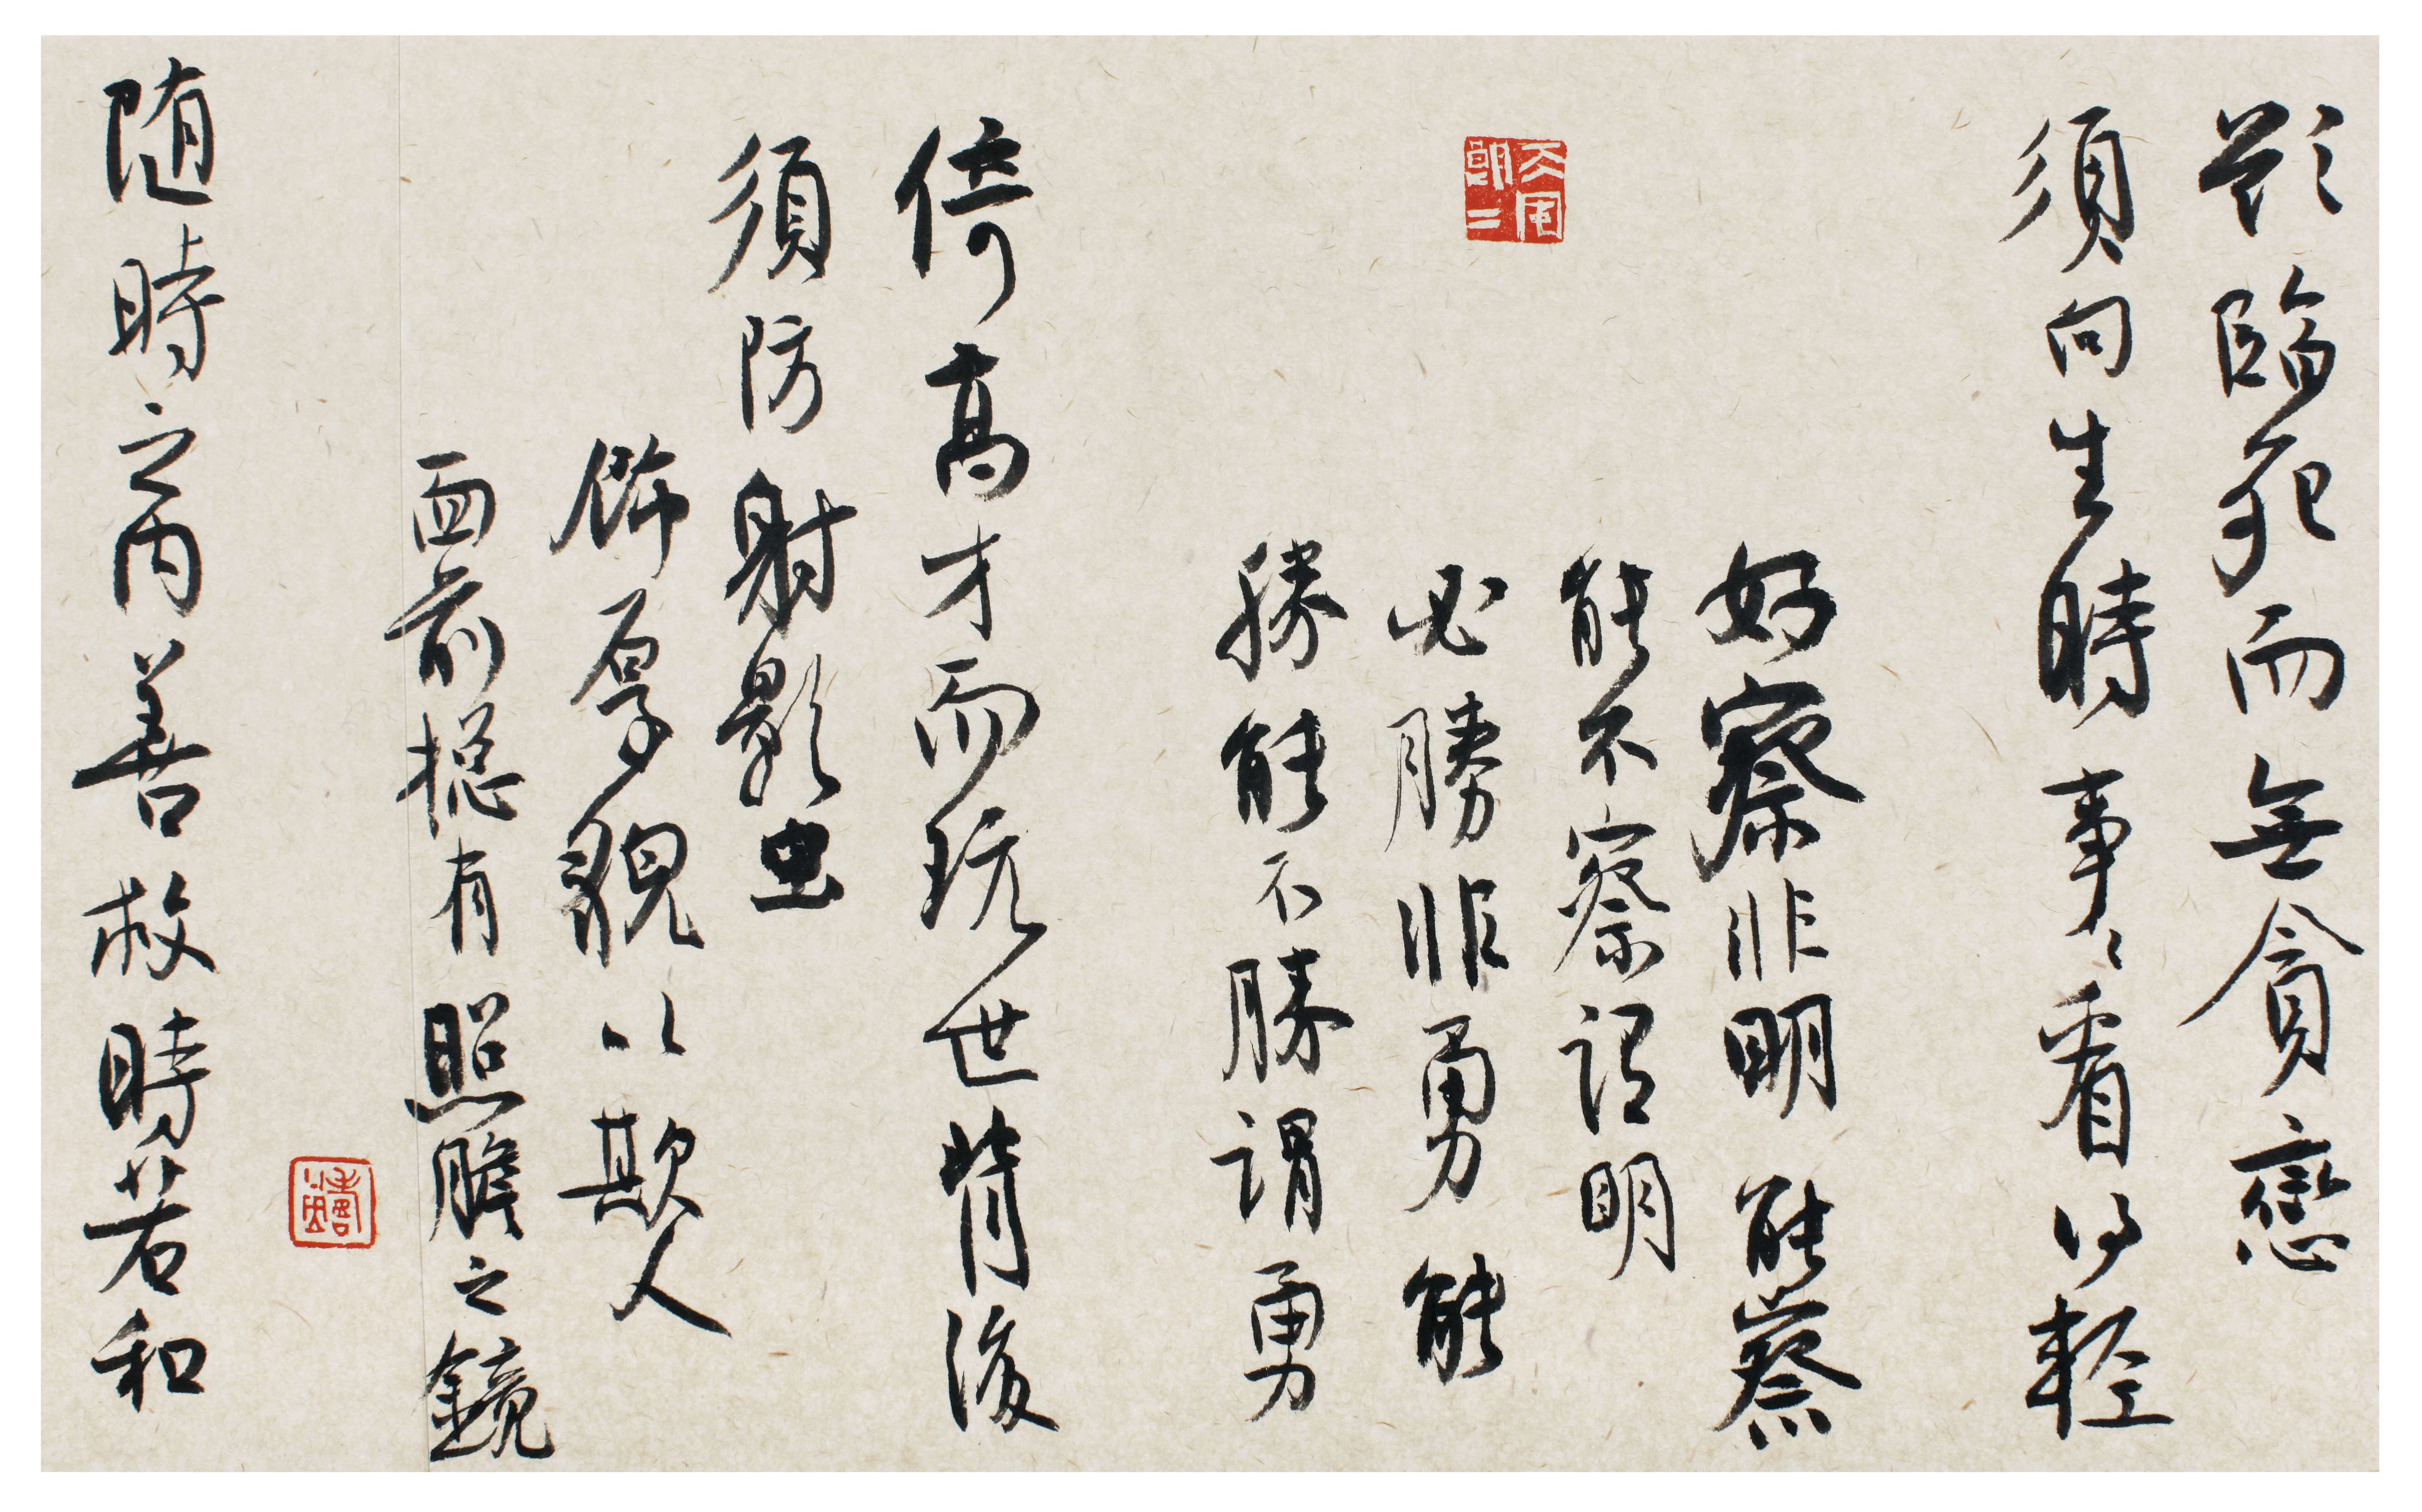 欲臨死而無貪戀
須向生時事々看得輕
好察非明能察
能不察謂明
必勝非勇能
勝能不勝謂勇
倚高才而玩世背後
須防射影虫
飾厚貌以欺人
面前摠有照膽之鏡
随時之內善救時若和